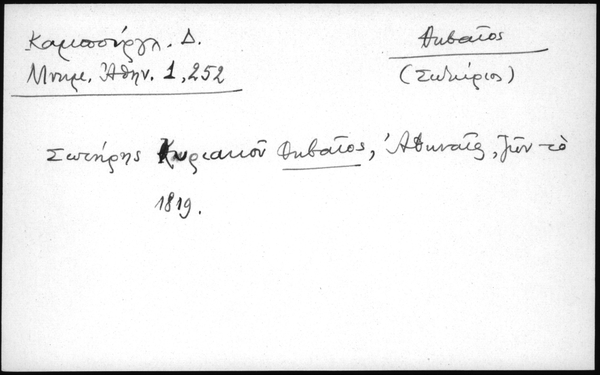 Καμπούργλ. Δ.
Μνημ. Ἀθην. 1,252
Θηβαῖος
(Σωτήριος)
Σωτήρης Κυριακοῦ Θηβαῖος, Ἀθηναῖος, ζῶν τὸ
1819.